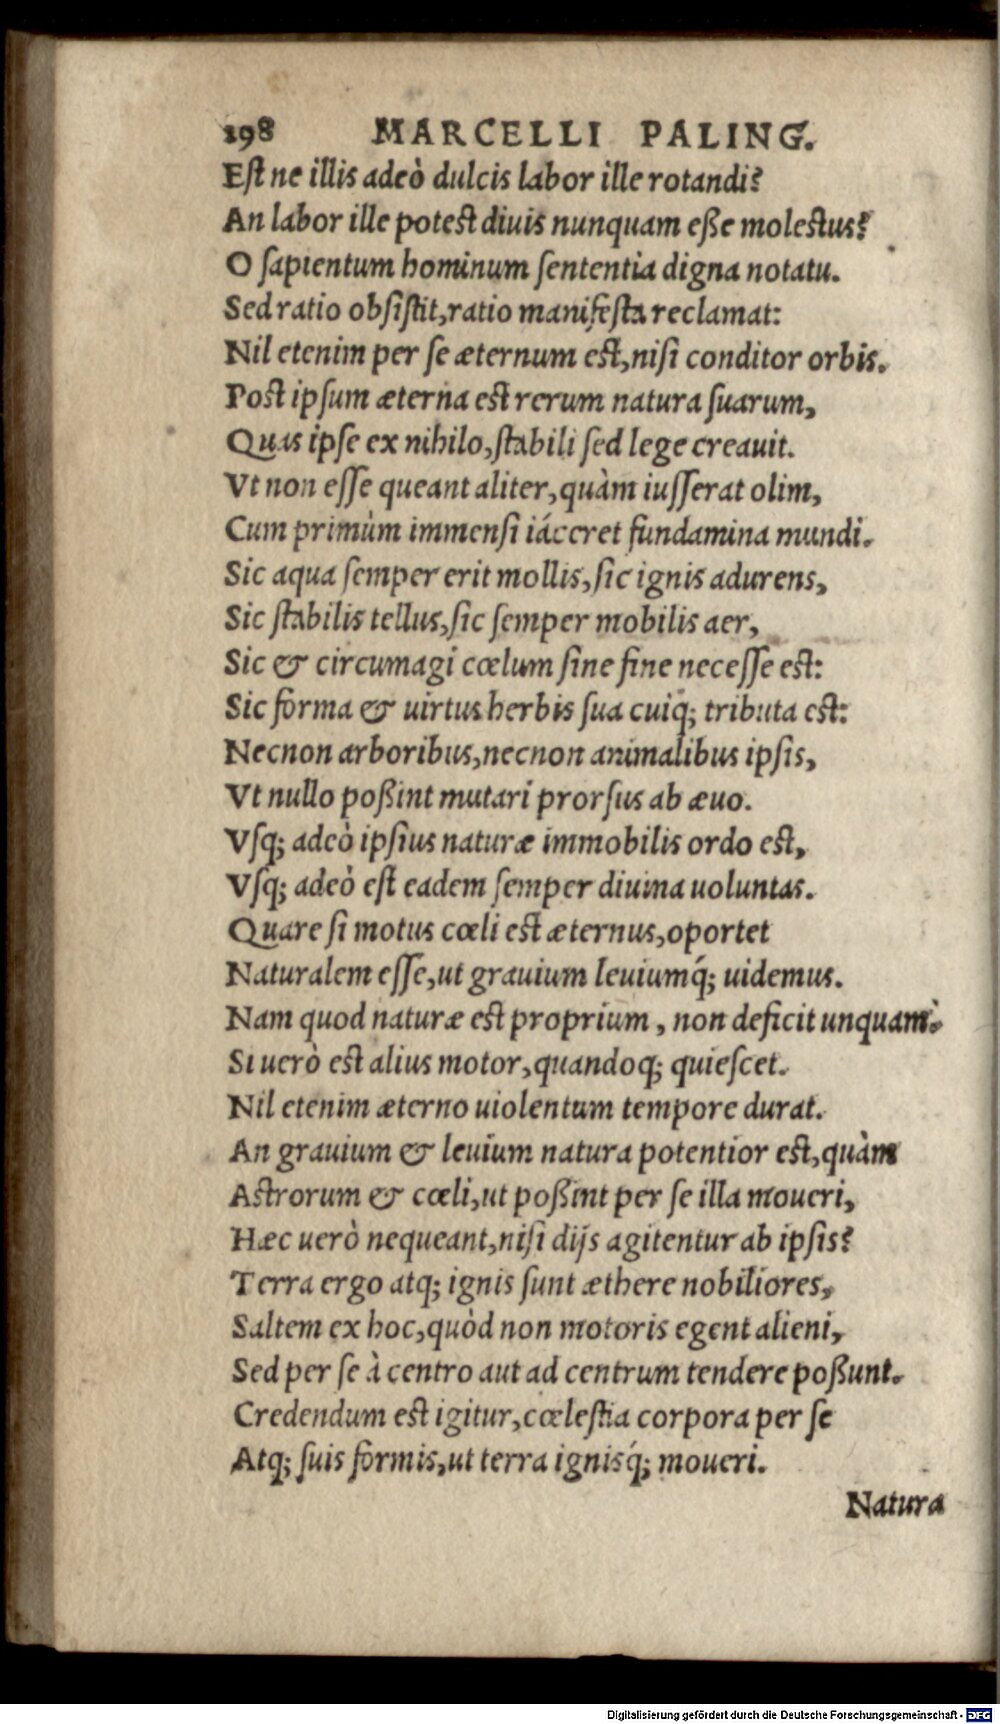 198 MARCELLI PALING.
Est ne illis adeò dulcis labor ille rotandi?
An labor ille potest diuis nunquam eße molestus?
O sapientum hominum sententia digna notatu.
Sed ratio obsistit, ratio manifesta reclamat:
Nil etenim per se æternum est, nisi conditor orbis.
Post ipsum æterna est rerum natura suarum,
Quas ipse ex nihilo, stabili sed lege creauit.
Vt non esse queant aliter, quàm iusserat olim,
Cum primùm immensi iáceret fundamina mundi.
Sic aqua semper erit mollis, sic ignis adurens,
Sic stabilis tellus, sic semper mobilis aer,
Sic & circumagi cœlum sine fine necesse est:
Sic forma & uirtus herbis sua cuiq; tributa est:
Necnon arboribus, necnon animalibus ipsis,
Vt nullo poßint mutari prorsus ab æuo.
Vsq; adeò ipsius naturæ immobilis ordo est,
Vsq; adeò est eadem semper diuina uoluntas.
Quare si motus cœli est æternus, oportet
Naturalem esse, ut grauium leuiumq́; uidemus.
Nam quod naturæ est proprium, non deficit unquam.
Si uerò est alius motor, quandoq; quiescet.
Nil etenim æterno uiolentum tempore durat.
An grauium & leuium natura potentior est, quàm
Astrorum & cœli, ut poßint per se illa moueri,
Hæc uerò nequeant, nisi dijs agitentur ab ipsis?
Terra ergo atq; ignis sunt æthere nobiliores,
Saltem ex hoc, quòd non motoris egent alieni,
Sed per se à centro aut ad centrum tendere poßunt.
Credendum est igitur, cœlestia corpora per se
Atq; suis formis, ut terra ignisq́; moueri.
Natura
Digitalisierung gefördert durch die Deutsche Forschungsgemeinschaft - DFG